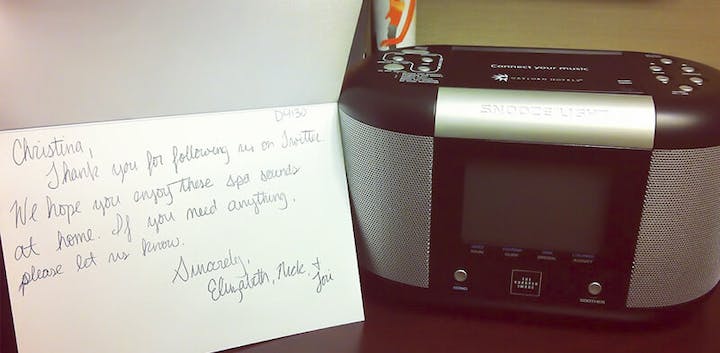 D4130
Christina,
Thank you for following us on Twitter.
We hope you enjoy these spa sounds
at home. If you need anything,
please let us know.
Sincerely,
Elizabeth, Nick, +
Lori
Connect your music
GAYLORD HOTELS
SNOOZE/LIGHT
THE
SHARPER
IMAGE
SOOTHER